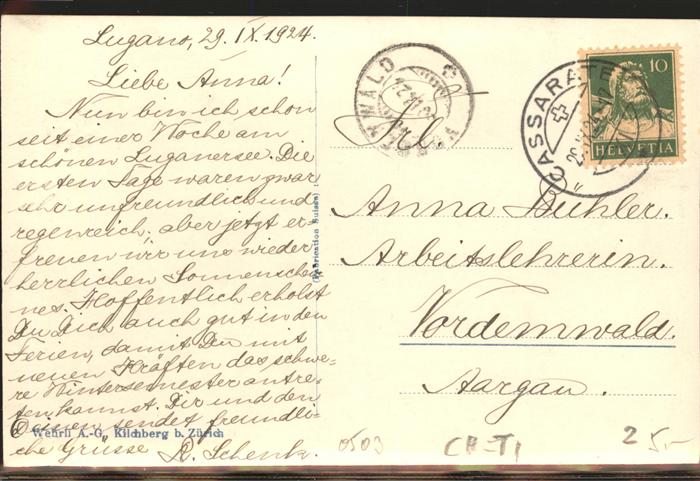 Lugano, 29. IX. 1924.
Liebe Anna!
Nun bin ich schon
seit einer Woche am
schönen Luganersee. Die
ersten Tage waren zwar
sehr unfreundlich und
regenreich, aber jetzt er-
freuen wir uns wieder
herrlichen Sonnenschei-
nes. Hoffentlich erholst
Du Dich auch gut in den
Ferien, damit Du mit
neuen Kräften das schwe-
re Wintersemester antre-
ten kannst. Dir und den
Deinen sendet freundli-
che Grüsse
Wehrli A.-G., Kilchberg b. Zürich
(Fabrication Suisse)
Frl.
Anna Bühler.
Arbeitslehrerin.
Vordemwald.
Aargau.
10
HELVETIA
CASSARATE
0503
CH-TI
25.-